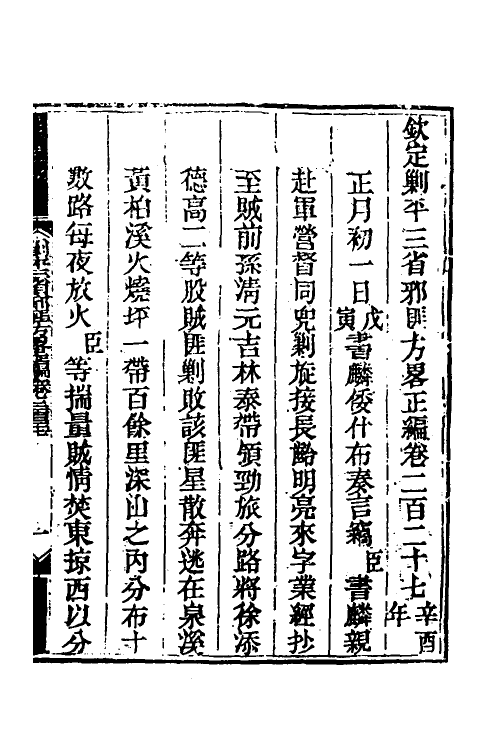 欽定剿平三省邪匪方畧正編卷二百二十七 辛酉年
正月初一日戊寅書麟倭什布奏言竊臣書麟親
赴軍營督同兜剿旋接長齡明亮來字業經抄
至賊前孫清元吉林泰帶領勁旅分路將徐添
德高二等股賊匪剿敗該匪星散奔逃在泉溪
黃柏溪火燒坪一帶百餘里深山之內分布十
數路每夜放火臣等揣量賊情焚東掠西以分